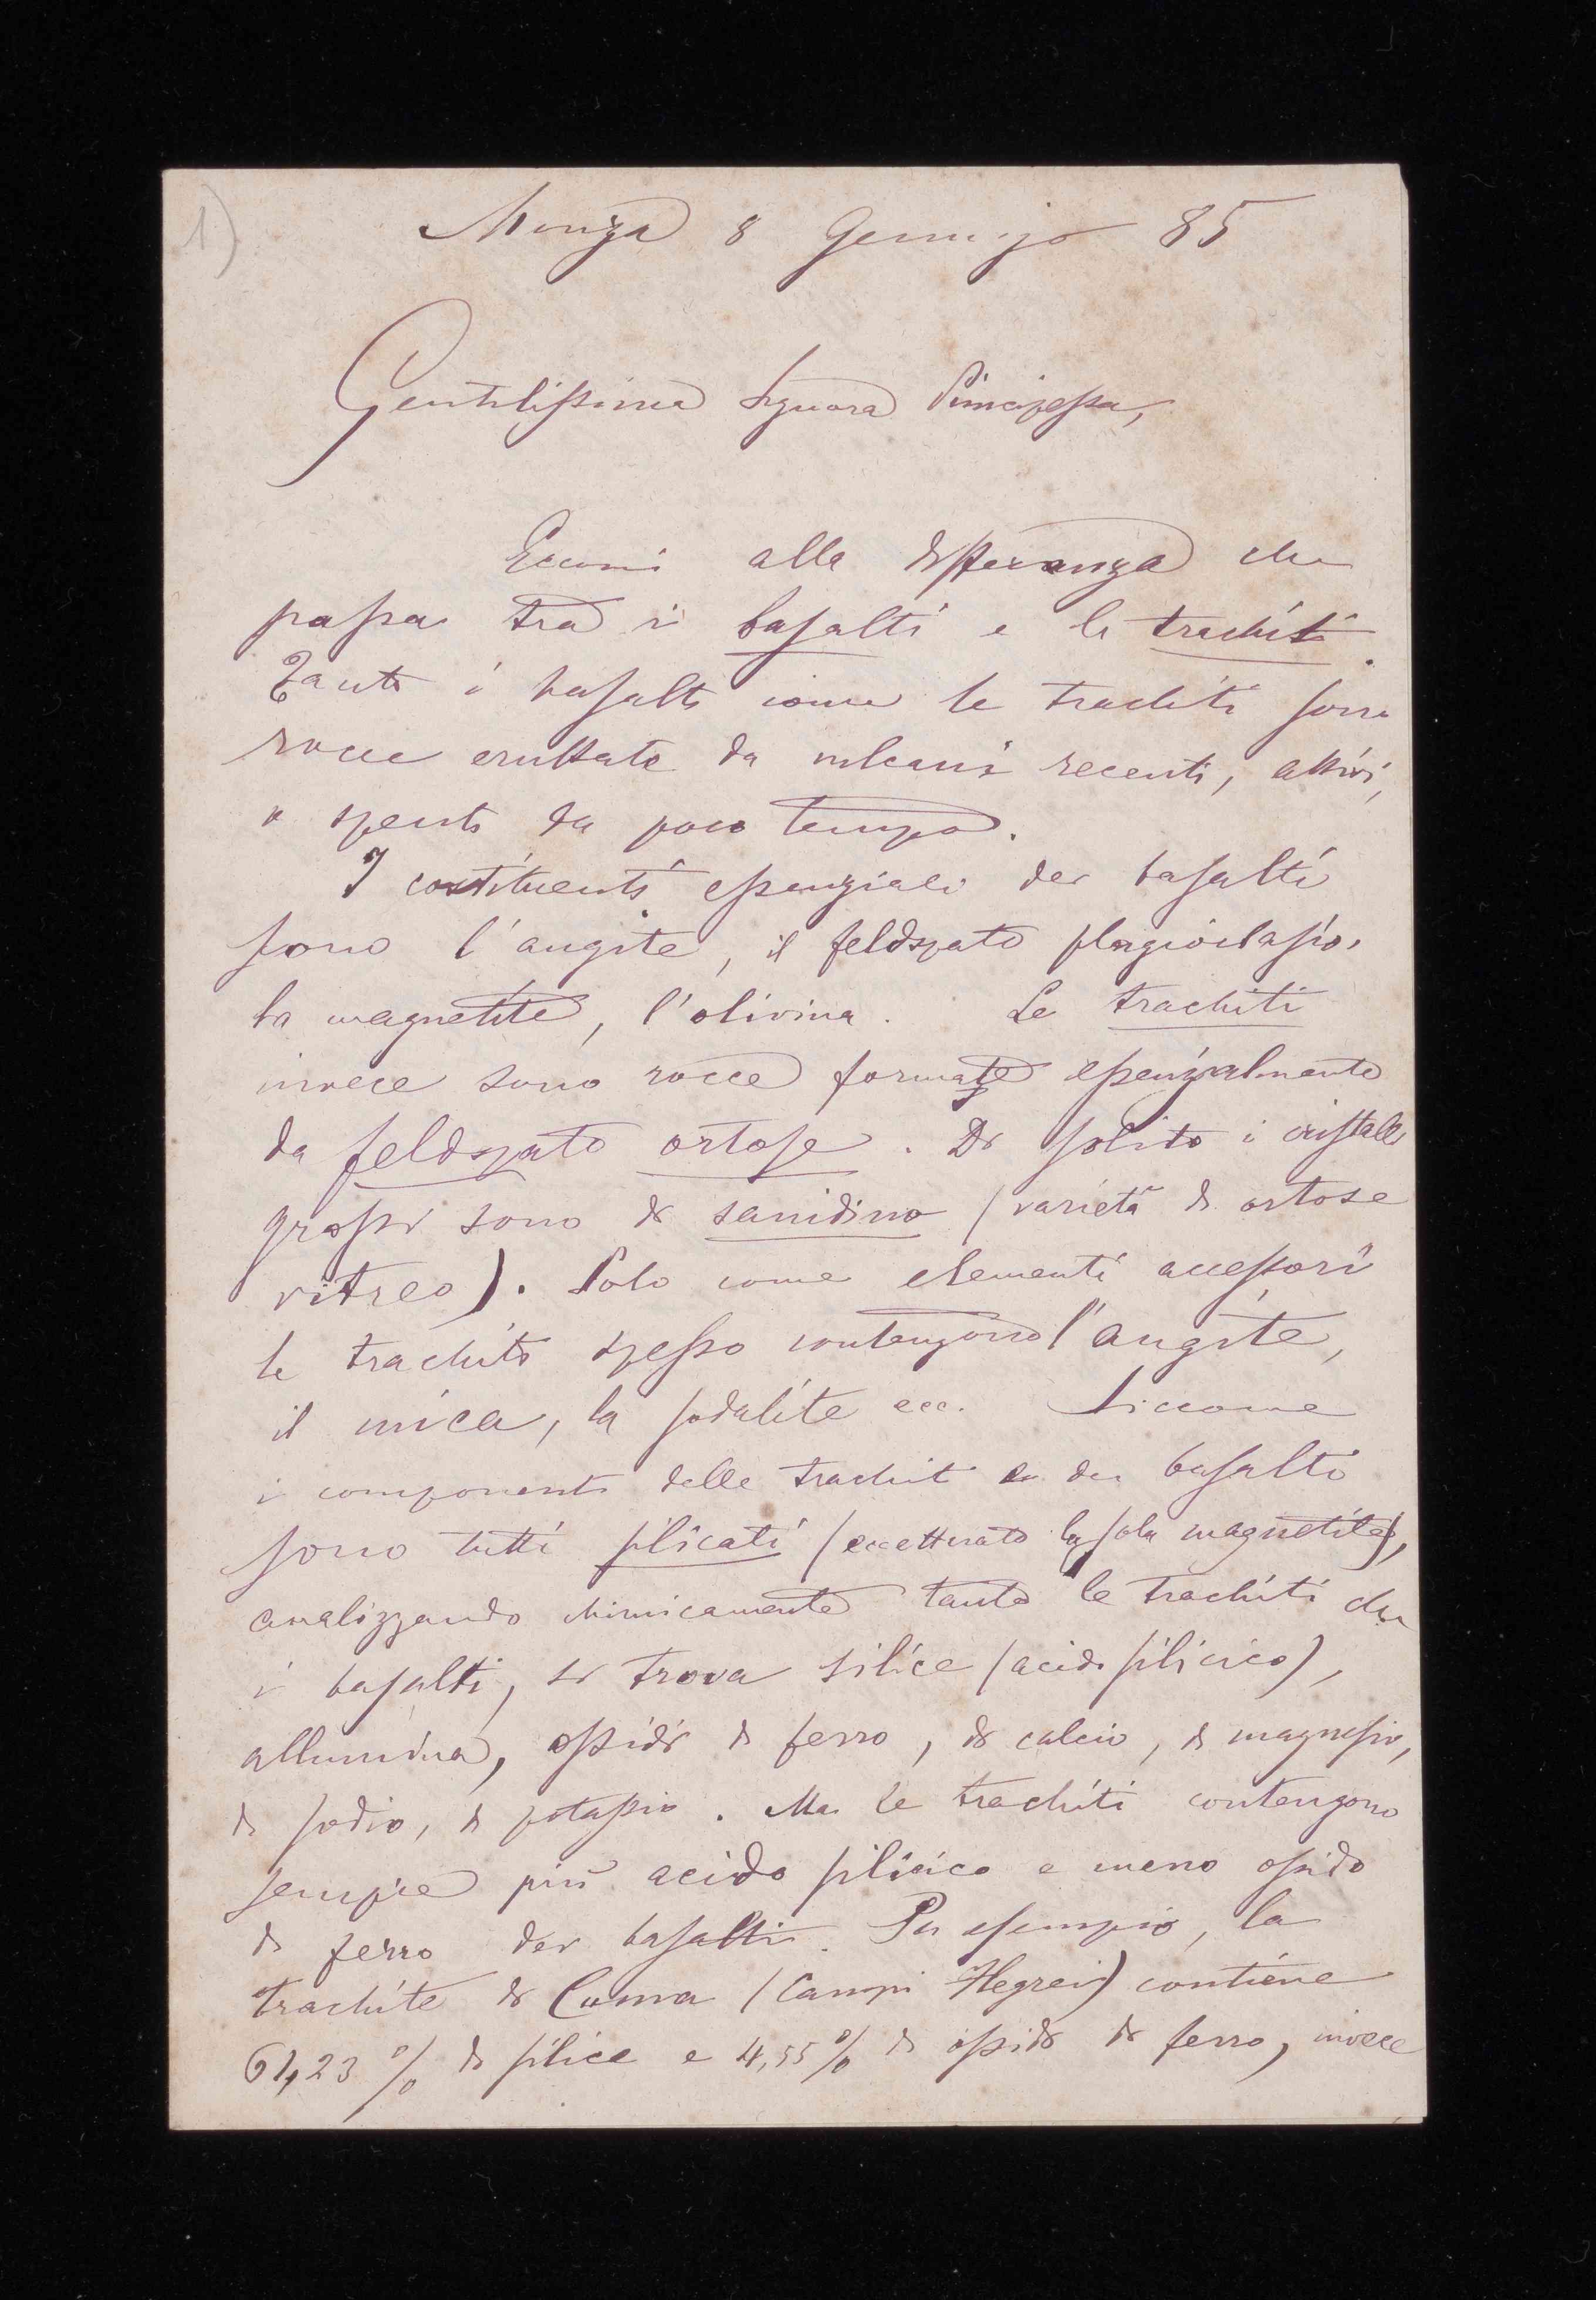 1)
Monza 8 Gennajo 85
Gentilissima Signora Principessa,
Eccomi alla differenza che
passa tra i basalti e le trachiti.
Tanto i basalti come le trachiti sono
rocce eruttate da vulcani recenti, attivi,
o spenti da poco tempo.
I costituenti essenziali dei basalti
sono l'augite, il feldspato plagioclasio,
la magnetite, l'olivina. Le trachiti
invece sono rocce formate essenzialmente
da feldspato ortose. Di solito i cristalli
grossi sono di sanidino (varietà di ortose
vitreo). Solo come elementi accessori
le trachiti spesso contengono l'augite,
il mica, la sodalite ecc. Siccome
i componenti delle trachiti e dei basalti
sono tutti silicati (eccettuato la sola magnetite),
analizzando chimicamente tanto le trachiti che
i basalti, si trova silice (acido silicico),
allumina, ossidi di ferro, di calcio, di magnesio,
di sodio, di potassio. Ma le trachiti contengono
sempre più acido silicico e meno ossido
di ferro dei basalti. Per esempio, la
trachite di Cuma (Campi Flegrei) contiene
61,23 % di silice e 4,55 % di ossido di ferro, invece